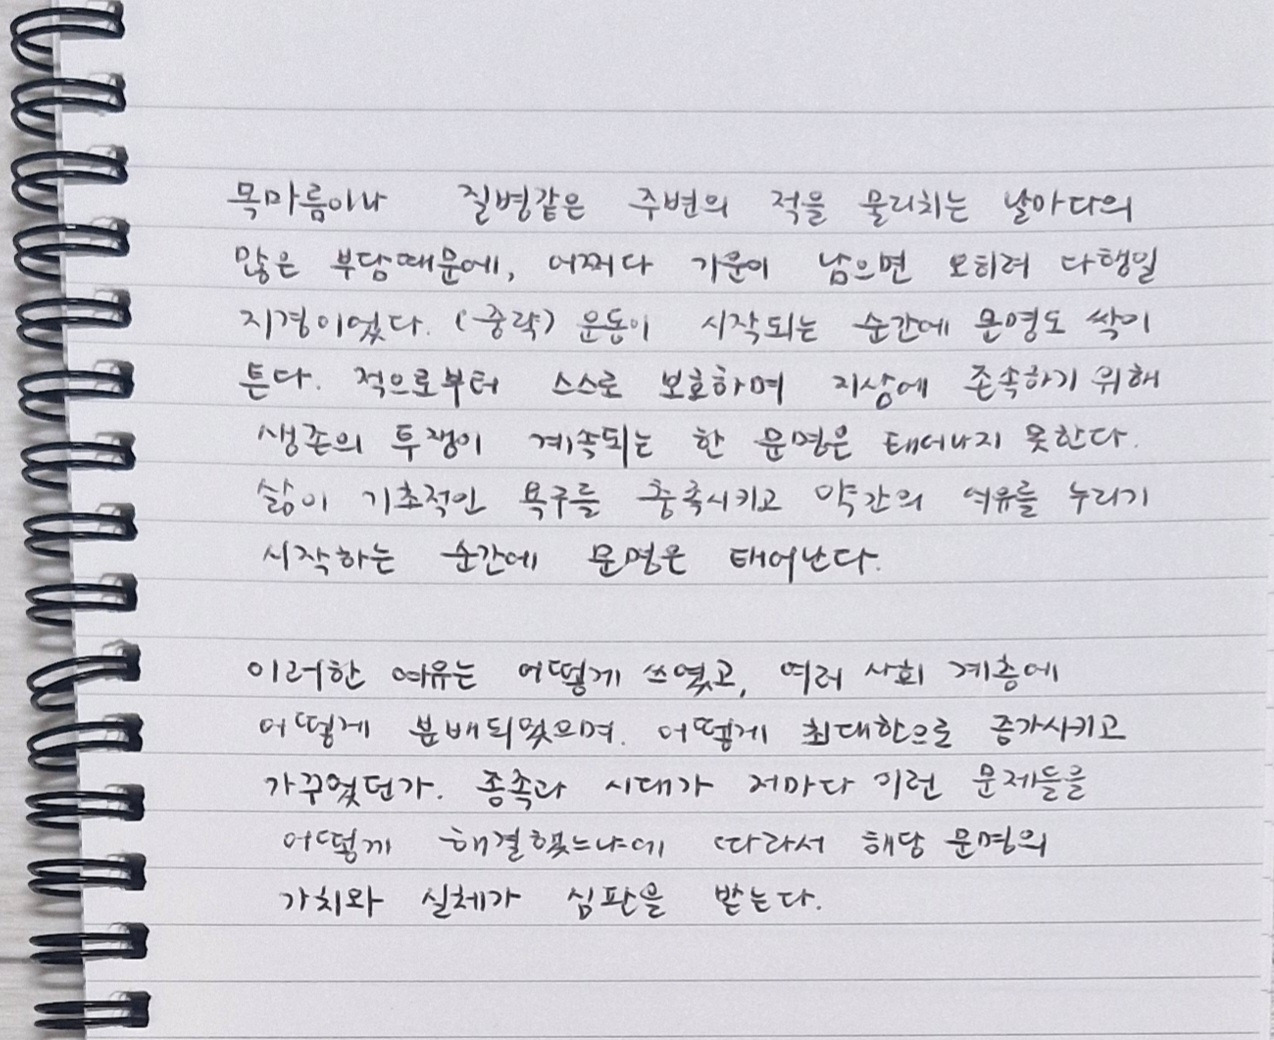 목마름이나 질병같은 주변의 적을 물리치는 날마다의
많은 부담때문에, 어쩌다 기운이 남으면 오히려 다행일
지경이었다. (중략) 운동이 시작되는 순간에 문명도 싹이
튼다. 적으로부터 스스로 보호하며 지상에 존속하기 위해
생존의 투쟁이 계속되는 한 문명은 태어나지 못한다.
삶이 기초적인 욕구를 충족시키고 약간의 여유를 누리기
시작하는 순간에 문명은 태어난다.
이러한 여유는 어떻게 쓰였고, 여러 사회 계층에
어떻게 분배되었으며. 어떻게 최대한으로 증가시키고
가꾸었던가. 종족과 시대가 저마다 이런 문제들을
어떻게 해결했느냐에 따라서 해당 문명의
가치와 실체가 심판을 받는다.